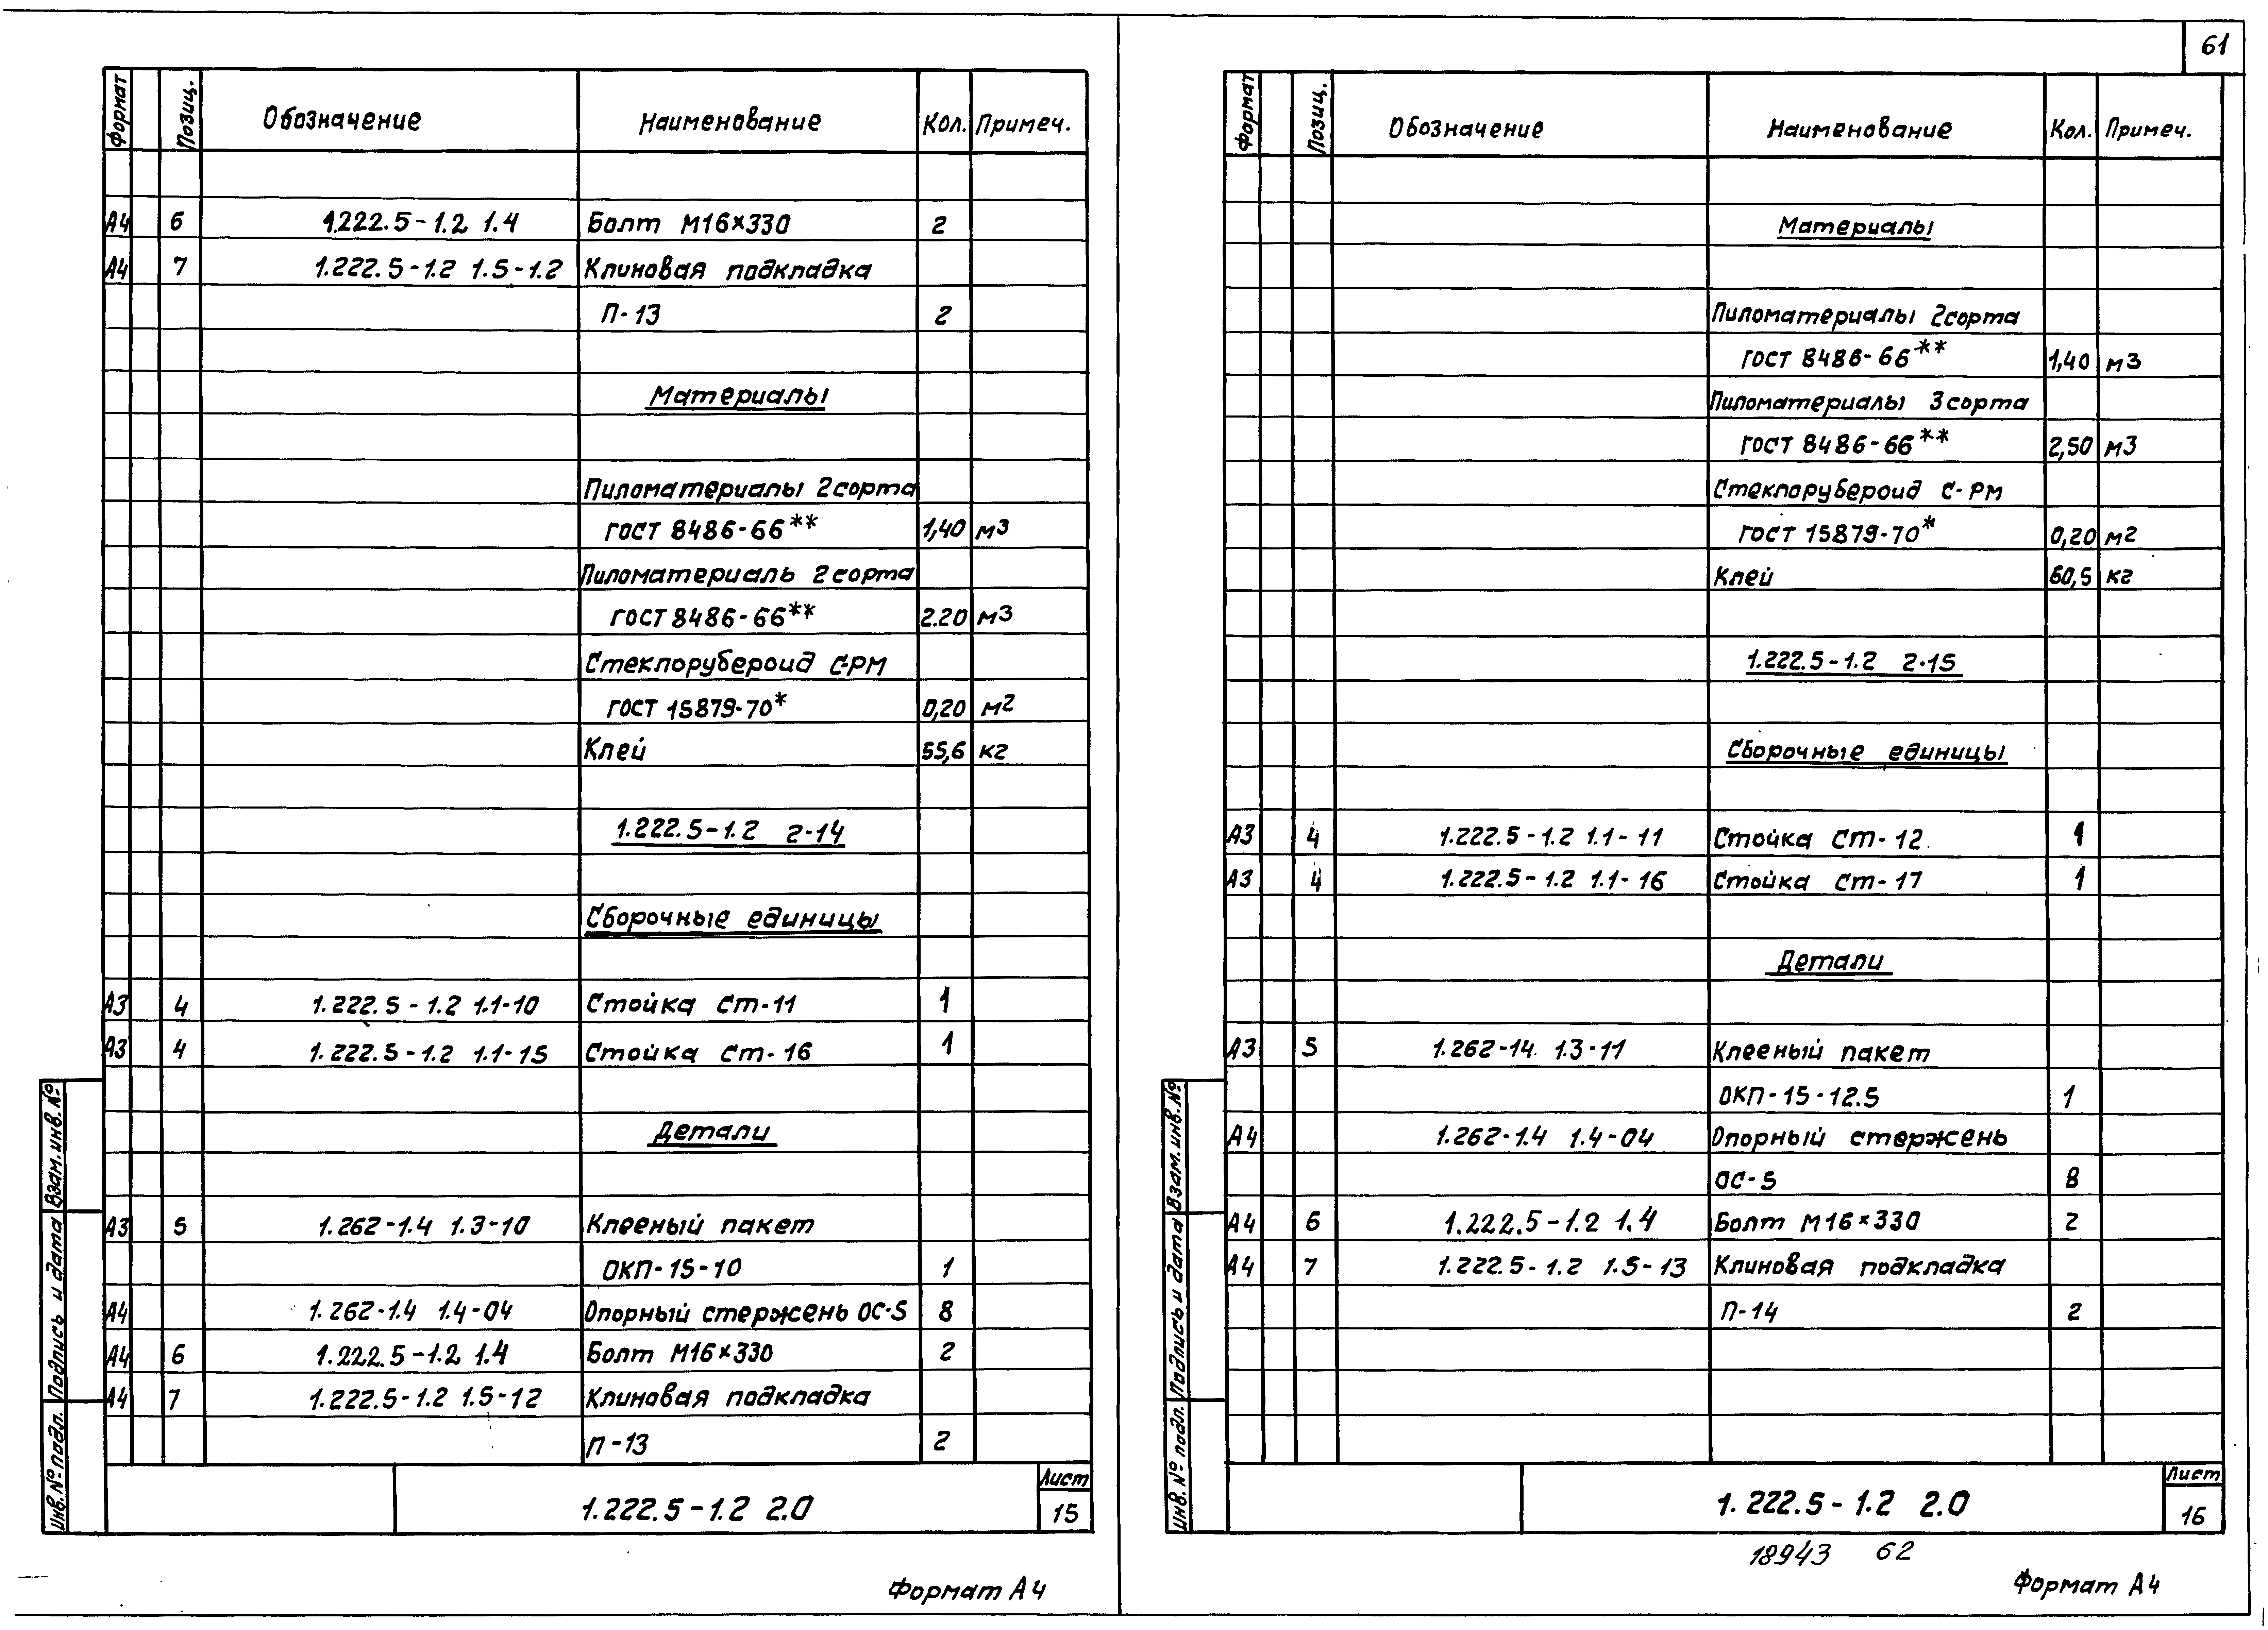 61
Формат Позиц. Обозначение Наименование Кол. Примеч.
А4 6 1.222.5-1.2 1.4 Болт М16×330 2
А4 7 1.222.5-1.2 1.5-1.2 Клиновая подкладка
П-13 2
Материалы
Пиломатериалы 2 сорта
ГОСТ 8486-66** 1,40 м3
Пиломатериаль 2 сорта
ГОСТ 8486-66** 2.20 м3
Стеклорубероид С-РМ
ГОСТ 15879-70* 0,20 м2
Клей 55,6 кг
1.222.5-1.2 2-14
Сборочные единицы
А3 4 1.222.5-1.2 1.1-10 Стойка Ст-11 1
А3 4 1.222.5-1.2 1.1-15 Стойка Ст-16 1
Детали
А3 5 1.262-1.4 1.3-10 Клееный пакет
ОКП-15-10 1
А4 1.262-1.4 1.4-04 Опорный стержень ОС-5 8
А4 6 1.222.5-1.2 1.4 Болт М16×330 2
А4 7 1.222.5-1.2 1.5-12 Клиновая подкладка
П-13 2
Взам. инв. №
Подпись и дата
Инв. № подл.
1.222.5-1.2 2.0
Лист
15
Формат А4
Формат Позиц. Обозначение Наименование Кол. Примеч.
Материалы
Пиломатериалы 2 сорта
ГОСТ 8486-66** 1,40 м3
Пиломатериалы 3 сорта
ГОСТ 8486-66** 2,50 м3
Стеклорубероид С-РМ
ГОСТ 15879-70* 0,20 м2
Клей 60,5 кг
1.222.5-1.2 2-15
Сборочные единицы
А3 4 1.222.5-1.2 1.1-11 Стойка Ст-12 1
А3 4 1.222.5-1.2 1.1-16 Стойка Ст-17 1
Детали
А3 5 1.262-14 1.3-11 Клееный пакет
ОКП-15-12.5 1
А4 1.262-1.4 1.4-04 Опорный стержень
ОС-5 8
А4 6 1.222.5-1.2 1.4 Болт М16×330 2
А4 7 1.222.5-1.2 1.5-13 Клиновая подкладка
П-14 2
Взам. инв. №
Подпись и дата
Инв. № подл.
1.222.5-1.2 2.0
Лист
16
18943 62
Формат А4